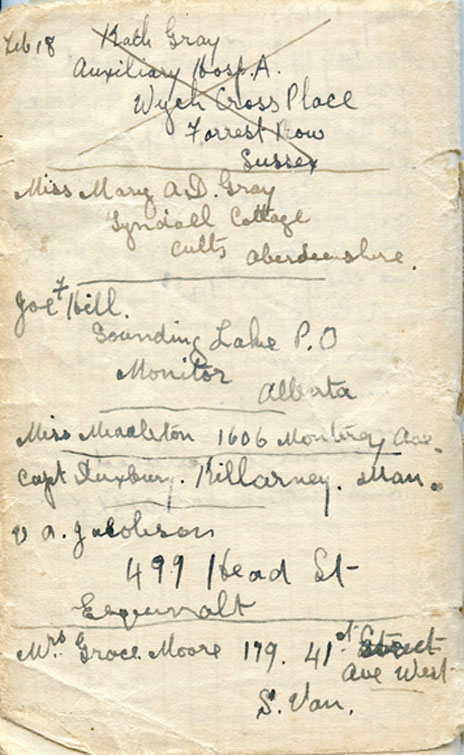 Feb 18 Kath Gray
Auxiliary Hosp. A.
Wych Cross Place
Forrest Row
Sussex
Miss Mary A.D. Gray
Tyndall Cottage
Cults Aberdeenshire.
Joe F Hill.
Sounding Lake P.O
Monitor
Alberta
Miss Middleton 1606 Monterey Ave.
Capt Duxbury. Killarney. Man.
V A. Jacobson
499 Head St
Esquimalt
Mrs Grace Moore 179. 41st Street
Ave West
S. Van.